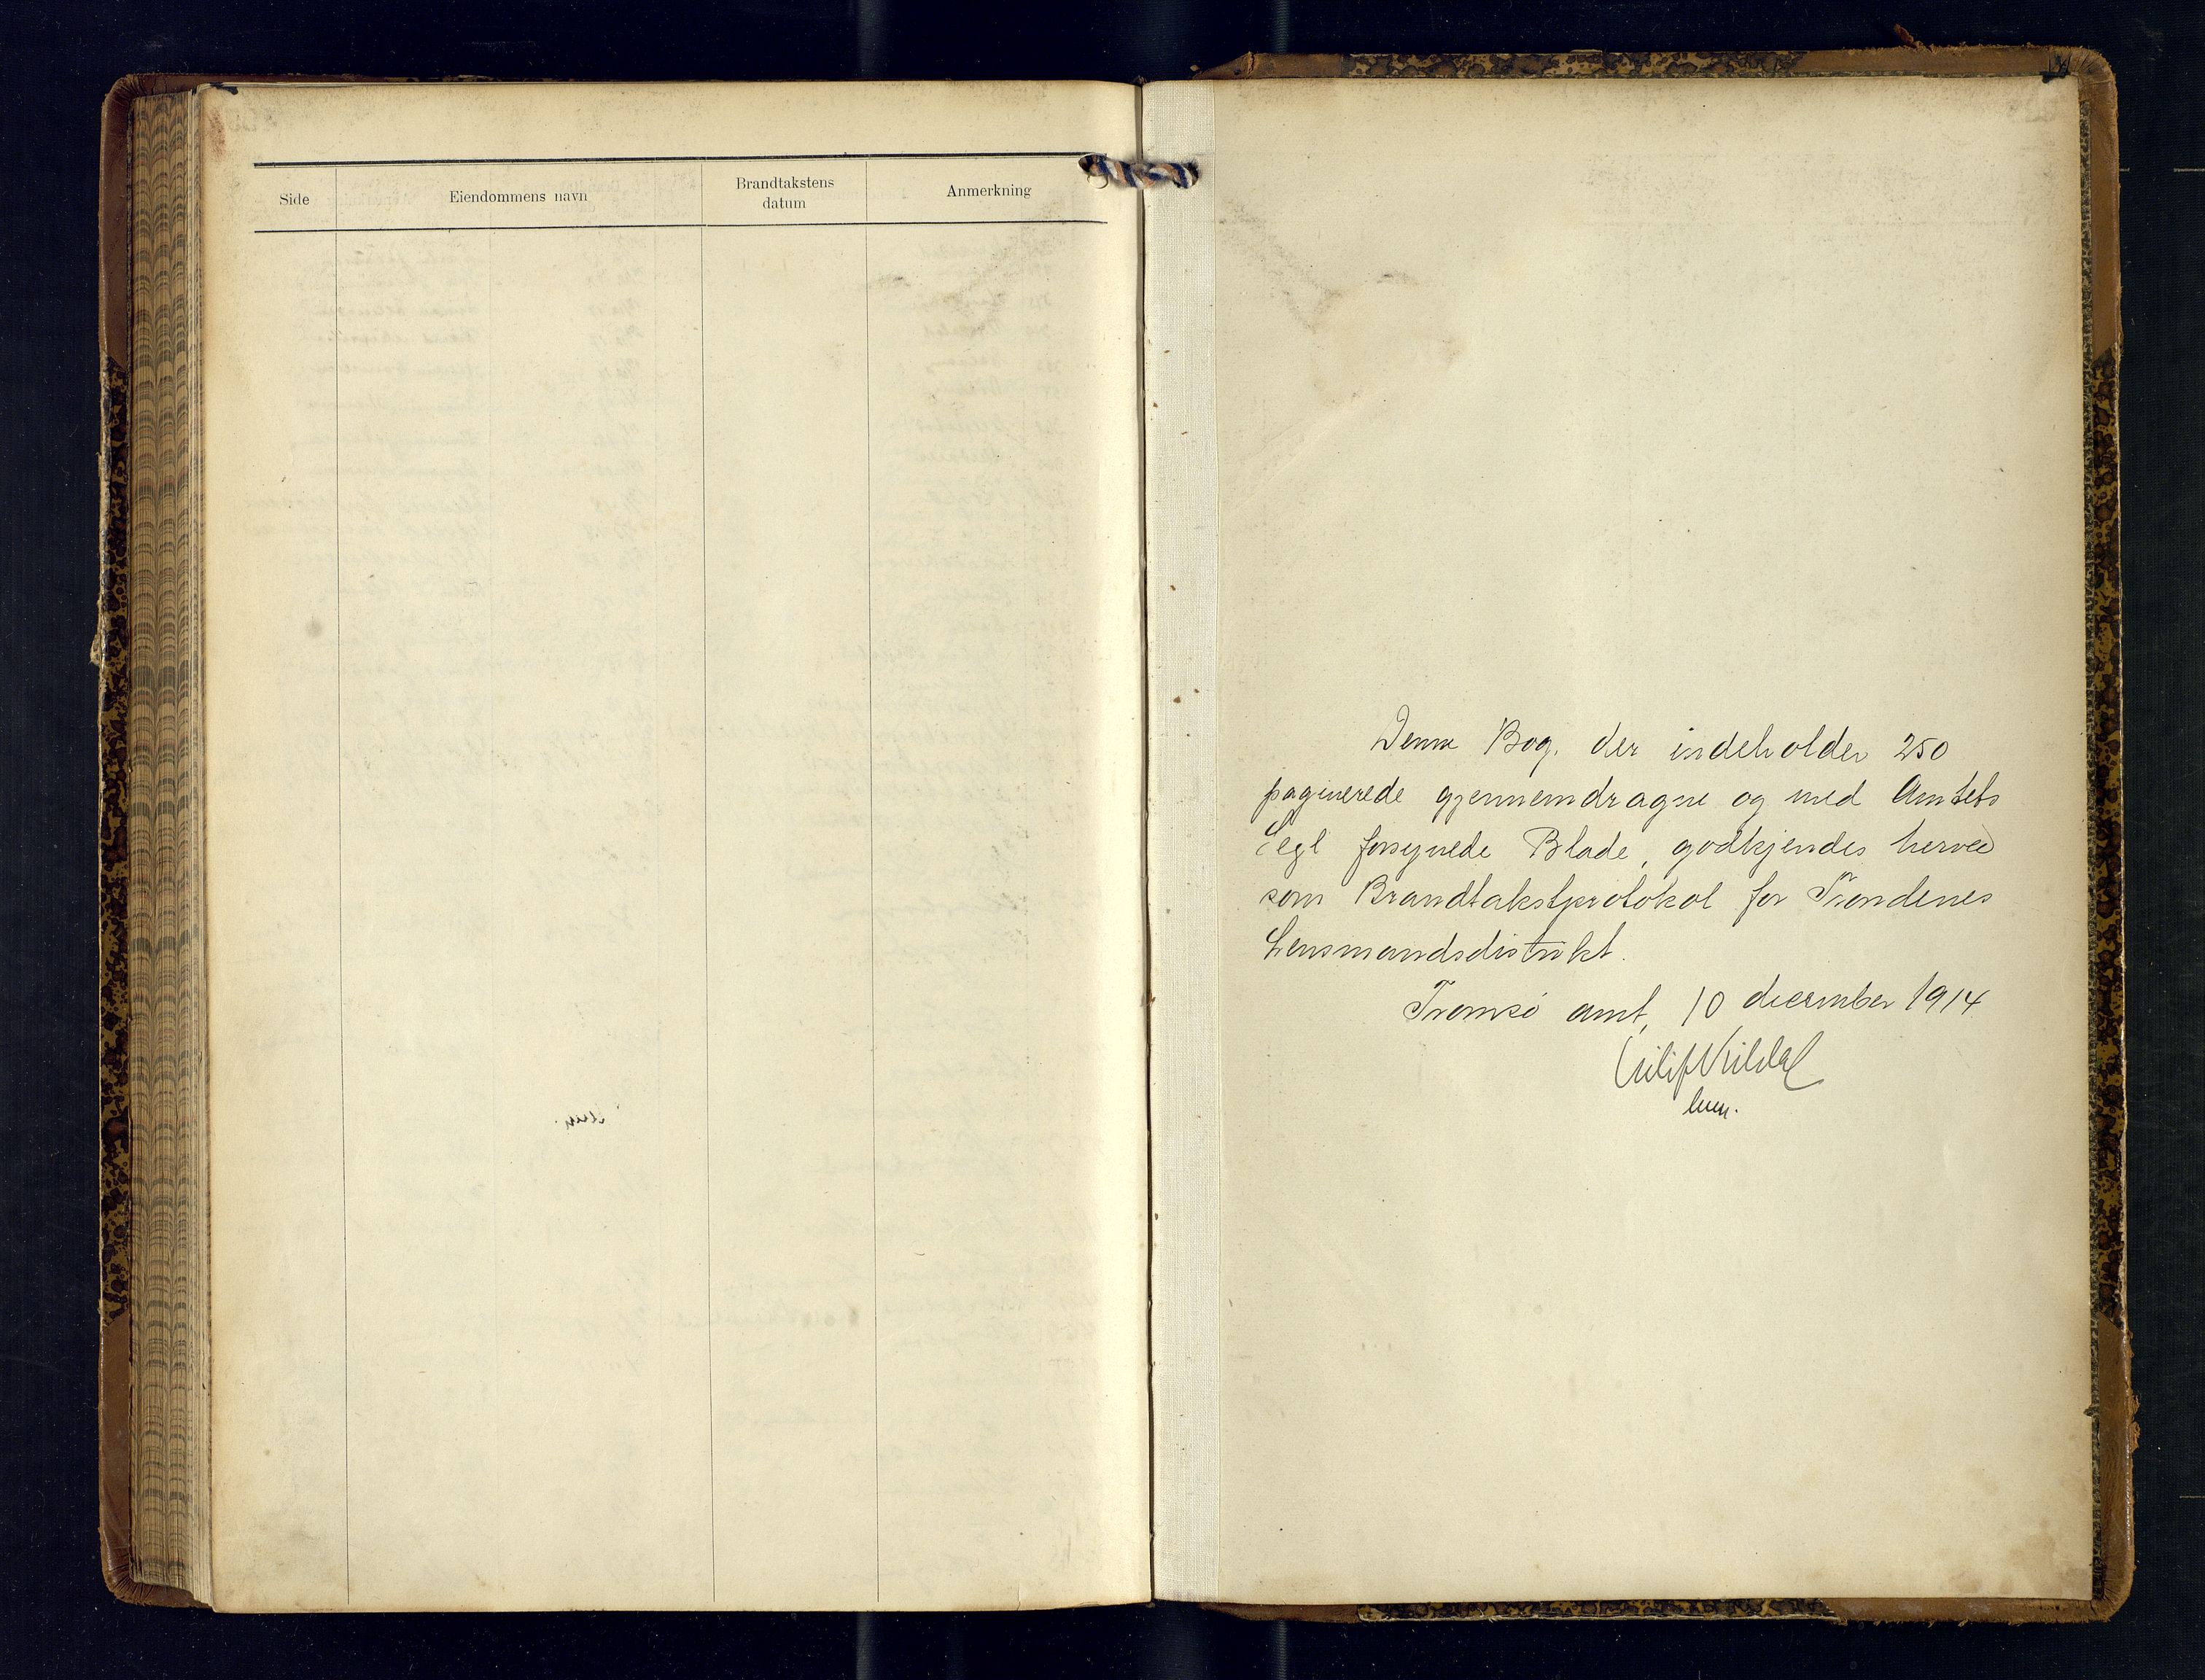 Side
Eiendommens navn
Brandtakstens
datum
Anmerkning
Denne Bog, der indeholder 250
paginerede gjennemdragne og med Amtets
Segl forsynede Blade, godkjendes herved
som Brandtakstprotokol for Trondenes
Lensmandsdistrikt.
Tromsø amt, 10 december 1914